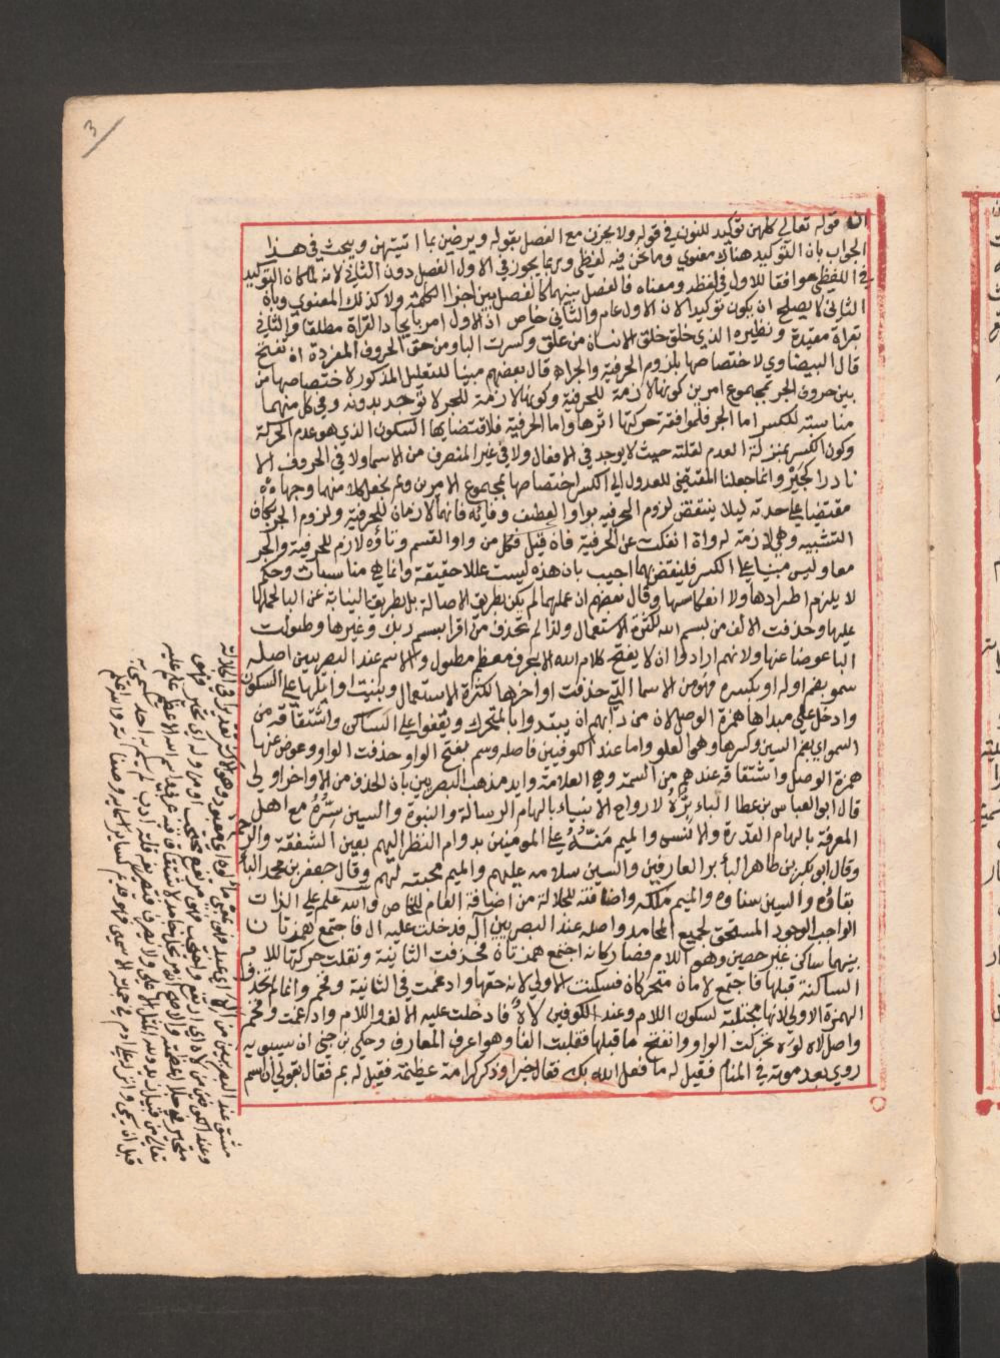 3
ان قوله تعالى كلهن توكيد للنون في قوله ولا يحزن مع الفصل بقوله ويرضين بما اتيتهن ويبحث في هذا
الجواب بان التوكيد هناك معنوي وما نحن فيه لفظي وربما يجوز في الاول الفصل دون الثاني لانه لما كان التوكيد
في اللفظي موافقا للاول في لفظه ومعناه فالفصل بينهما كالفصل بين اجزا الكلمة ولا كذلك المعنوي وبان
الثاني لا يصلح ان يكون توكيدا لان الاول عام والثاني خاص اذ الاول امر بايجاد القراة مطلقا والثاني
بقراة مقيدة ونظيره الذي خلق خلق الانسان من علق وكسرت البا ومن حق الحروف المفردة ان تفتح
قال البيضاوي لاختصاصها بلزوم الحرفية والجراه قال بعضهم مبينا للتعليل المذكور لاختصاصها من
بين حروف الجر بمجموع امرين كونها لازمة للحرفية وكونها لازمة للجر لا توجد بدونه وفي كل منهما
مناسبته للكسر اما الجر فلموافقة حركتها اثرها واما الحرفية فلاقتضايها السكون الذي هو عدم الحركة
وكون الكسر بمنزلة العدم لقلته حيث لا يوجد في الافعال ولا في غير المنصرف من الاسما ولا في الحروف الا
نادرا كجير وانما جعلنا المقتضي للعدول الى الكسر اختصاصها بمجموع الامرين ولم نجعل كلا منهما وجها
مقتضيا على حدته ليلا ينتقض لزوم الحرفيه بواو العطف وفايه فانهما لازمان للحرفية ولزوم الجر بكاف
التشبيه وهي لازمة له وان انفكت عن الحرفية فان قيل فكل من واو القسم وتاؤه لازم للحرفية والجر
معا وليس مبنيا على الكسر فلينقض بهما اجيب بان هذه ليست عللا حقيقة وانما هي مناسبات وحكم
لا يلزم اطرادها ولا انعكاسها وقال بعضهم ان عملهما لم يكن بطريق الاصالة بل بطريق النيابة عن البا لحملها
عليها وحذفت الالف من بسم الله لكثرة الاستعمال ولذا لم تحذف من اقرا باسم ربك وغيرها وطولت
البا عوضا عنها ولانهم ارادوا ان لا يفتح كلام الله الا بحرف معظم مطول والاسم عند البصريين اصله
سمو بضم اوله او بكسره وهو من الاسما التي حذفت اواخرها لكثرة الاستعمال وبنيت اوايلها على السكون
وادخل على مبداها همزة الوصل لان من دابهم ان يبتدوا بالمتحرك ويقفوا على الساكن واشتقاقه من
السمو اي بضم السين وكسرها وهي العلو واما عند الكوفيين فاصله وسم بفتح الواو حذفت الواو وعوض عنها
همزة الوصل واشتقاقه عندهم من السمة وهي العلامة وايد مذهب البصريين بان الحذف من الاواخر اولى
قال ابو العباس بن عطا الباء بره لارواح الانبياء بالهام الرسالة والنبوة والسين سره مع اهل
المعرفة بالهام القدرة والانس والميم منته على المومنين بدوام النظر اليهم بعين الشفقة والرحمة
وقال ابو بكر بن طاهر الباء بر العارفين والسين سلامه عليهم والميم محبته لهم وقال جعفر بن محمد البا
بقاؤه والسين سناوه والميم ملكه واضافته للجلالة من اضافة العام للخاص والله علم على الذات
الواجب الوجود المستحق لجميع المحامد واصله عند البصريين اله فدخلت عليه ال فاجتمع همزتان
بينهما ساكن غير حصين وهو اللام فصار كانه اجتمع همزتان فحذفت الثانية ونقلت حركتها للام
الساكنة قبلها فاجتمع لامان متحركان فسكنت الاولى لانه حقها وادغمت في الثانية وفخم وانما لم تحذف
الهمزة الاولى لانها مجتلبة لسكون اللام وعند الكوفيين لاه فادخلت عليه الالف واللام وادغمت وفخم
واصل لاه لوه تحركت الواو وانفتح ما قبلها فقلبت الفا وهو اعرف المعارف وحكى بن جني ان سيبويه
روي بعد موته في المنام فقيل له ما فعل الله بك فقال خيرا وذكر كرامة عظيمة فقيل له بم فقال بقولي ان اسم
مشتق عند البصريين من اله
وعند الكوفيين من لاه